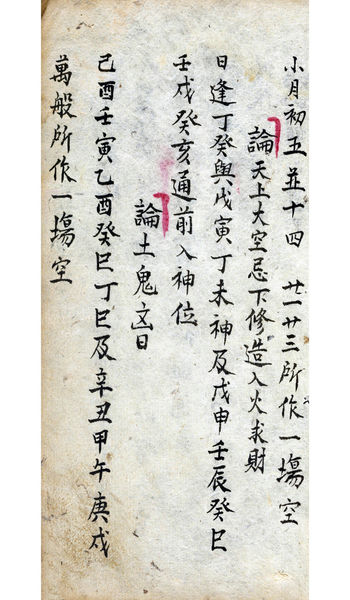 小月初五並十四 廿一廿三所作一塲空
論天上大空忌下修造入火求財
日逢丁癸與戊寅丁未神及戊申壬辰癸巳
壬戌癸亥通前入神位
論土鬼凶日
己酉壬寅乙酉癸巳丁巳及辛丑甲午庚戌
萬般所作一塲空